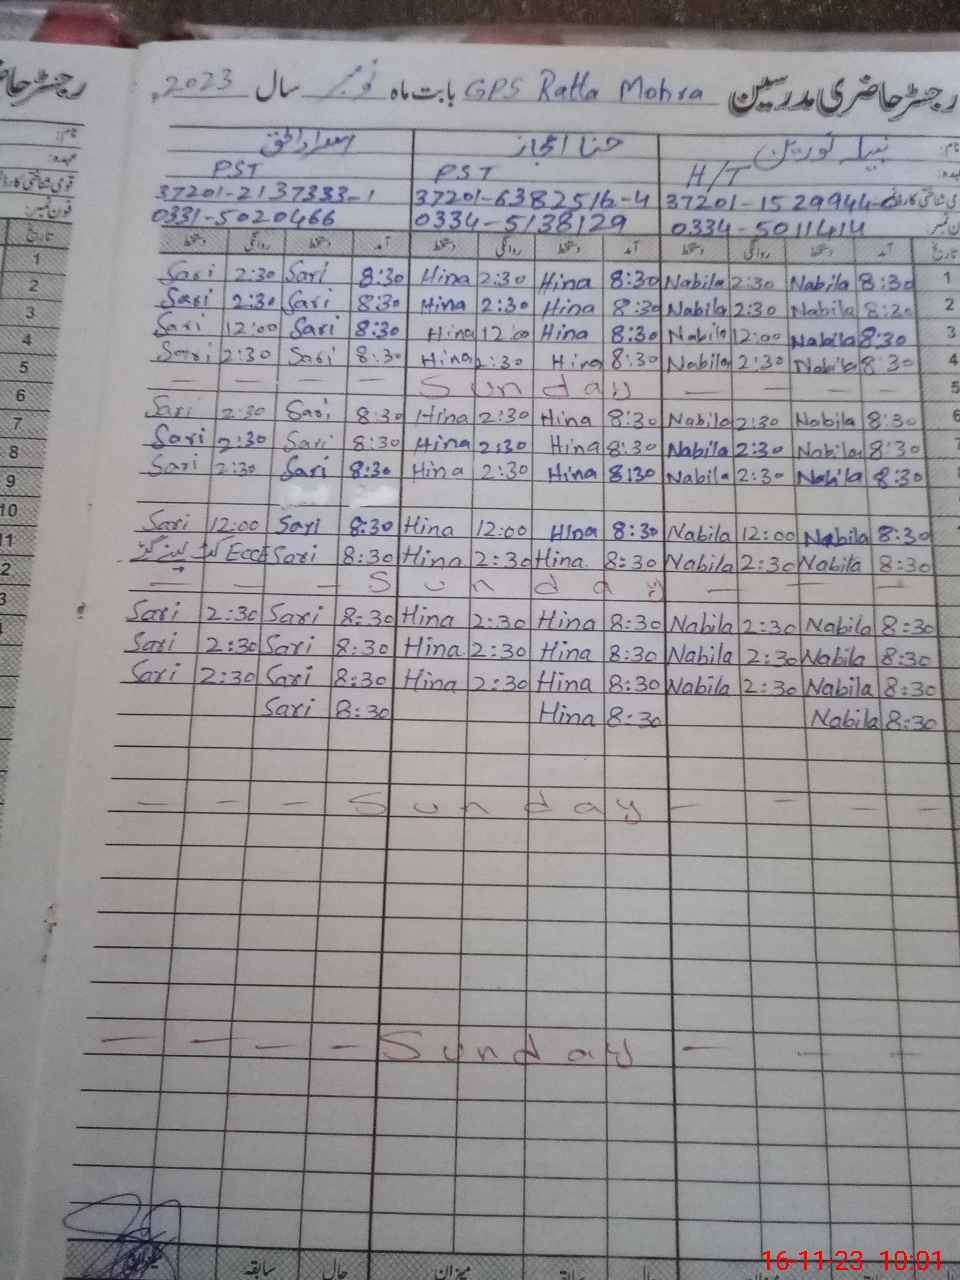 رجسٹر حاضری مدرسین GPS Ratta Mohra بابت ماہ نومبر سال 2023ء
نبیلہ نورین حنا اعجاز
H/T PST PST
37201-6382516-4 37201-2137333-1
0334-5011414 0334-5138129 0331-5020466
تاریخ آمد دستخط روانگی دستخط آمد دستخط روانگی دستخط آمد دستخط روانگی دستخط
Sari 2:30 Sari 8:30 Hina 2:30 Hina 8:30 Nabila 2:30 Nabila 8:30 1
Sari 2:30 Sari 8:30 Hina 2:30 Hina 8:30 Nabila 2:30 Nabila 8:30 2
Sari 12:00 Sari 8:30 Hina 12:00 Hina 8:30 Nabila 12:00 Nabila 8:30 3
Sari 2:30 Sari 8:30 Hina 2:30 Hina 8:30 Nabila 2:30 Nabila 8:30 4
— — — — Sunday — — — — 5
Sari 2:30 Sari 8:30 Hina 2:30 Hina 8:30 Nabila 2:30 Nabila 8:30 6
Sari 2:30 Sari 8:30 Hina 2:30 Hina 8:30 Nabila 2:30 Nabila 8:30
Sari 2:30 Sari 8:30 Hina 2:30 Hina 8:30 Nabila 2:30 Nabila 8:30
Sari 12:00 Sari 8:30 Hina 12:00 Hina 8:30 Nabila 12:00 Nabila 8:30
Sari 8:30 Hina 2:30 Hina 8:30 Nabila 2:30 Nabila 8:30
— — — Sunday — — —
Sari 2:30 Sari 8:30 Hina 2:30 Hina 8:30 Nabila 2:30 Nabila 8:30
Sari 2:30 Sari 8:30 Hina 2:30 Hina 8:30 Nabila 2:30 Nabila 8:30
Sari 2:30 Sari 8:30 Hina 2:30 Hina 8:30 Nabila 2:30 Nabila 8:30
Sari 8:30 Hina 8:30 Nabila 8:30
— — — Sunday — — — —
— — — — Sunday — — —
میزان حال سابقہ
رجسٹر
تاریخ
1
2
3
4
5
6
7
8
9
10
11
16-11-23 10:01